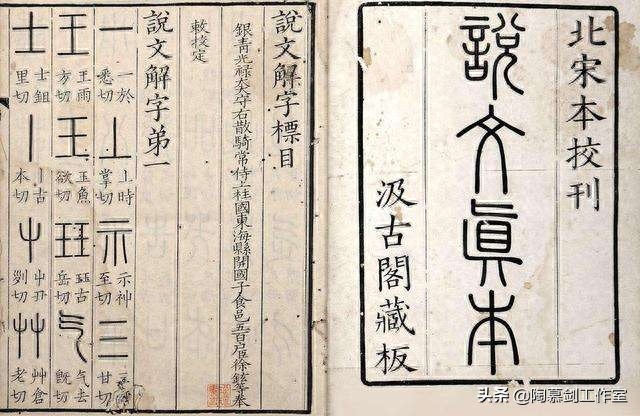 北宋本校刊
說文眞本
汲古閣藏板
說文解字標目
銀青光祿大夫守右散騎常侍上柱國東海縣開國子食邑五百戶徐鉉等奉
敕校定
說文解字弟一
一 一於悉切 丄 丄時掌切 示 示神至切 三 甘切
王 王雨方切 王 玉魚欲切 玨 玨古岳切 气 气去旣切
士 士鉏里切 丨 丨古本切 屮 屮丑列切 艸 艸倉老切
头条 @陶慕剑工作室